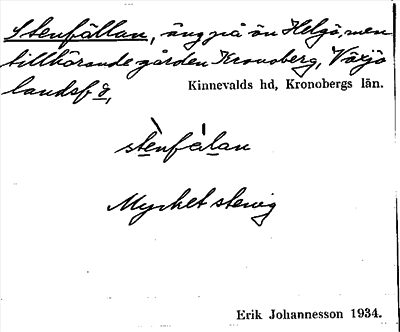 Stenfällan, äng på ön Helgö, men
tillhörande gården Kronoberg, Växjö
landsf ö,
Kinnevalds hd, Kronobergs län.
stènfälan
Mycket stenig
Erik Johannesson 1934.